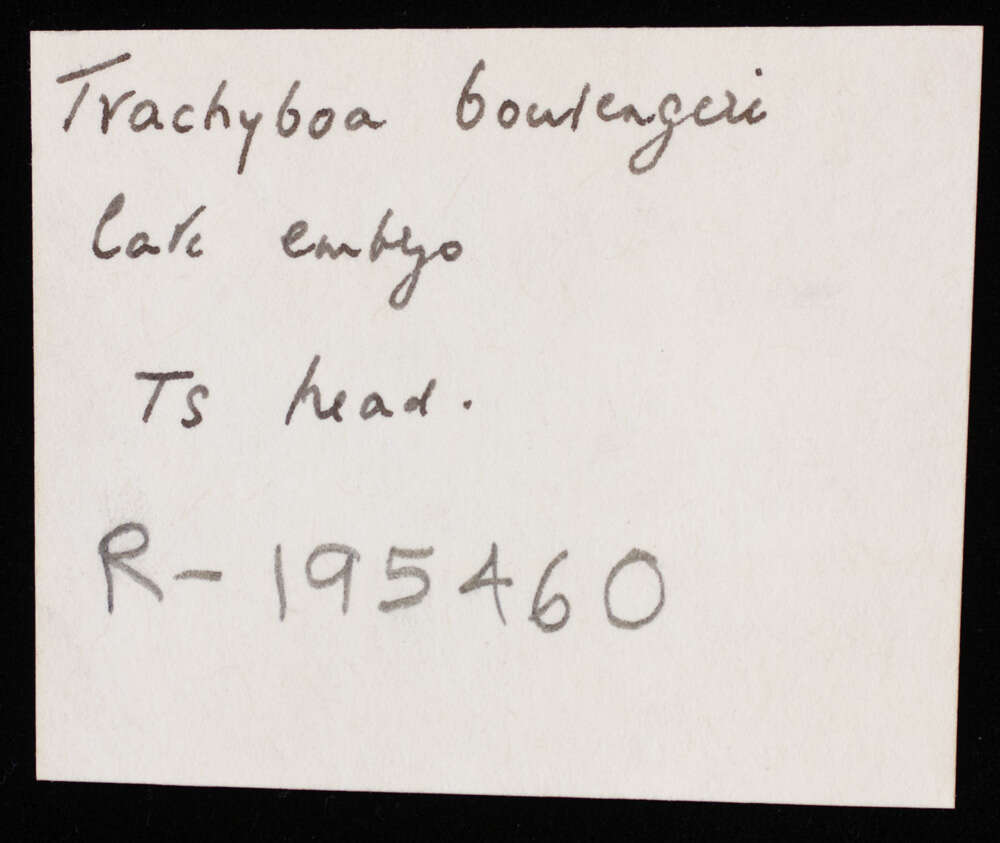 Trachyboa boulengeri
late embryo
TS head.
R-195460